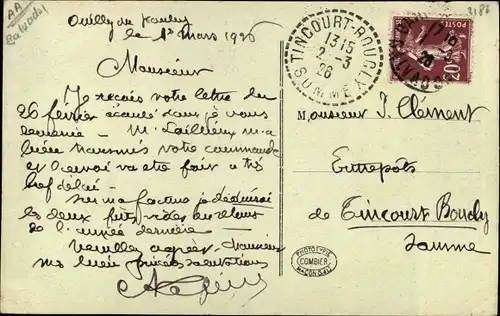 le 1er mars 1926
Monsieur
Je reçois votre lettre du
26 février écoulé dont je vous
remercie — M. Lailleux m'a
bien transmis votre commande
et l'envoi va être fait à très
bref délai —
Sur ma facture je déduirai
les deux futs vides en retour
de l'année dernière —
Veuillez agréer, Monsieur
mes bien sincères salutations
TINCOURT-BOUCLY
1315
2-3
26
SOMME
POSTES
20c
Monsieur J. Clément
Entrepôts
de Tincourt Boucly
Somme
PHOTOTYPIE
COMBIER
MACON